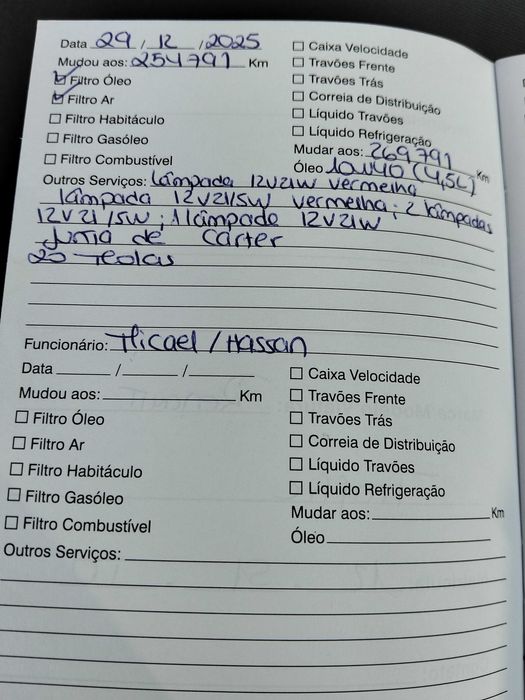 Data 29 / 12 / 2025
Mudou aos: 254791 Km
☑ Filtro Óleo
☑ Filtro Ar
☐ Filtro Habitáculo
☐ Filtro Gasóleo
☐ Filtro Combustível
☐ Caixa Velocidade
☐ Travões Frente
☐ Travões Trás
☐ Correia de Distribuição
☐ Líquido Travões
☐ Líquido Refrigeração
Mudar aos: 269791 Km
Óleo 10W40 (4,5L)
Outros Serviços: Lâmpada 12V21W vermelha
Lâmpada 12V21/5W vermelha; 2 lâmpadas
12V21/5W; 1 lâmpada 12V21W
Junta de Cárter
20 
Funcionário: Micael / Hassan
Data ____ / ____ / ____
Mudou aos: ____ Km
☐ Filtro Óleo
☐ Filtro Ar
☐ Filtro Habitáculo
☐ Filtro Gasóleo
☐ Filtro Combustível
☐ Caixa Velocidade
☐ Travões Frente
☐ Travões Trás
☐ Correia de Distribuição
☐ Líquido Travões
☐ Líquido Refrigeração
Mudar aos: ____ Km
Óleo ____
Outros Serviços: ____